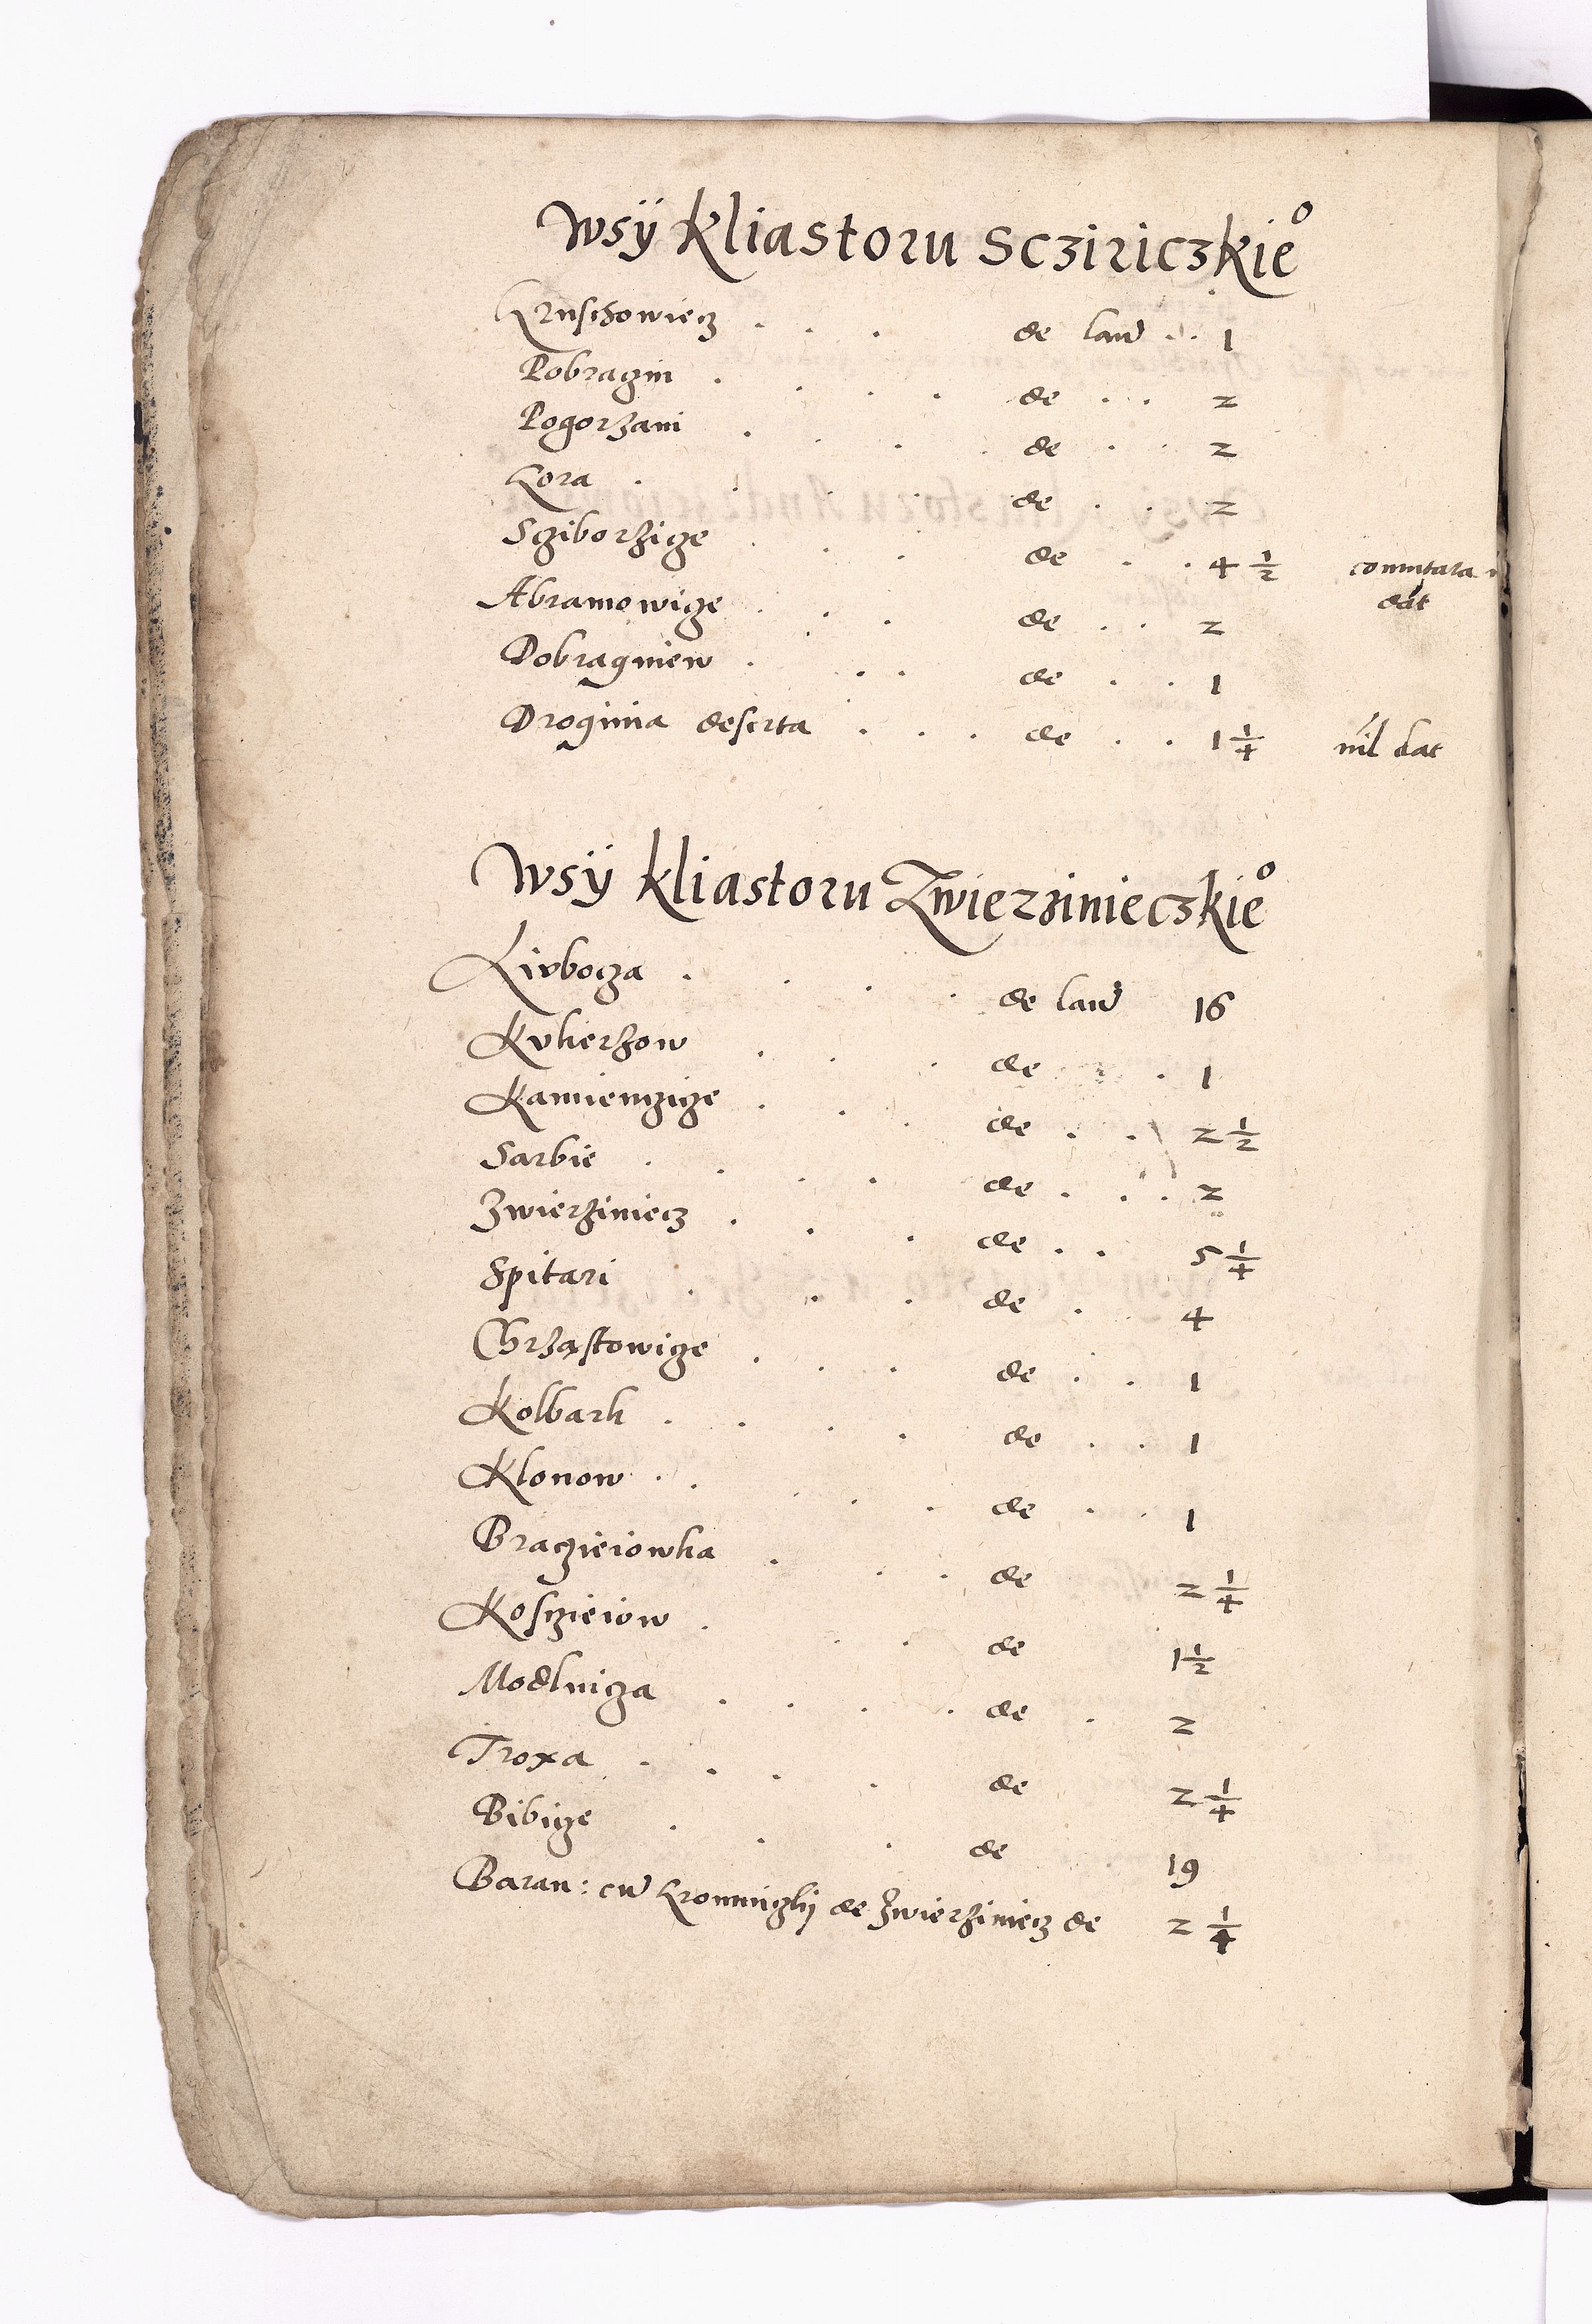 Wsÿ Kliastoru Scziriczkie°
Kruschowiecz . . . de lan̄ . . 1
Pobraczin . . . . de . . 2
Pogorzani . . . . de . . 2
Gora . . . . de . . 2
Scziborzicze . . . de . . 4 1/2
dat
Abramowicze . . . de . . 2
Dobragniew . . . de . . 1
Droginia deserta . . . de . . 1 1/4 nil dat
Wsÿ kliastoru Zwierzinieczkie°
Livbocza . . . . de lan̄ 16
Kvkerzow . . . de . 1
Kamienczicze . . . de . . 2 1/2
Sarbie . . . . de . . . 2
Zwierziniecz . . . de . . 5 1/4
Spitari . . . de . 4
Chrząstowicze . . . de . . 1
Kolbark . . . . de . . 1
Klonow . . . . . de . . 1
Braczieiowka . . . de 2 1/4
Kosczieiow . . . de 1 1/2
Modlnicza . . . . de . 2
Troxa . . . . de 2 1/4
Bibicze . . . de 19
Baran: cū de Zwierziniecz de 2 1/4